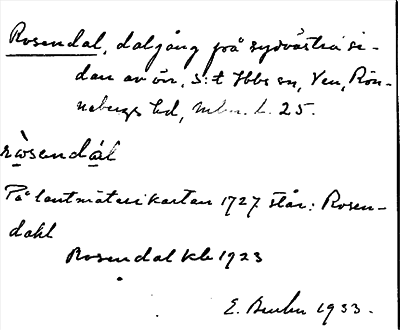 Rosendal, dalgång på sydvästra si-
dan av ön, S:t Ibbs sn, Ven, Rön-
nebergs hd, Mlm. L. 25.
ràsendál
På lantmäterikartan 1727 står: Rosen-
dahl
Rosendal kle 1923
E. 1933.